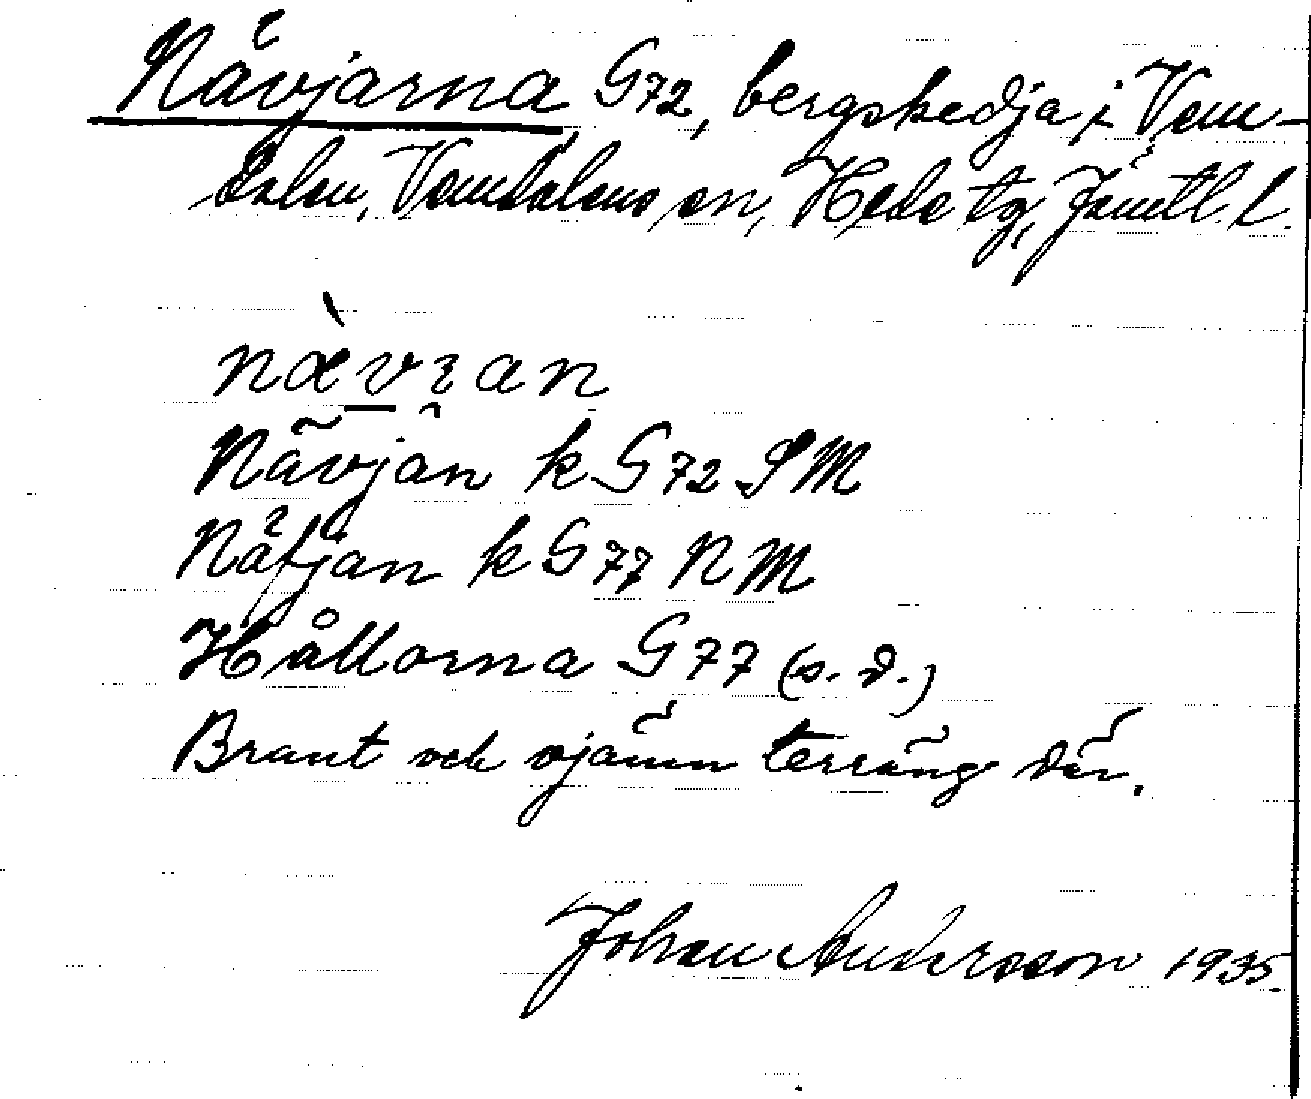 Nävjarna G72, bergskedja i Vem-
dalen, Vemdalens sn, Hede tg, Jämtl. l.
nævɪan
Nävjân k G72 SM
Näfjan k G77 NM
Hållorna G77 (s. d.)
Brant och ojämn terräng där.
Johan Andersson 1935.